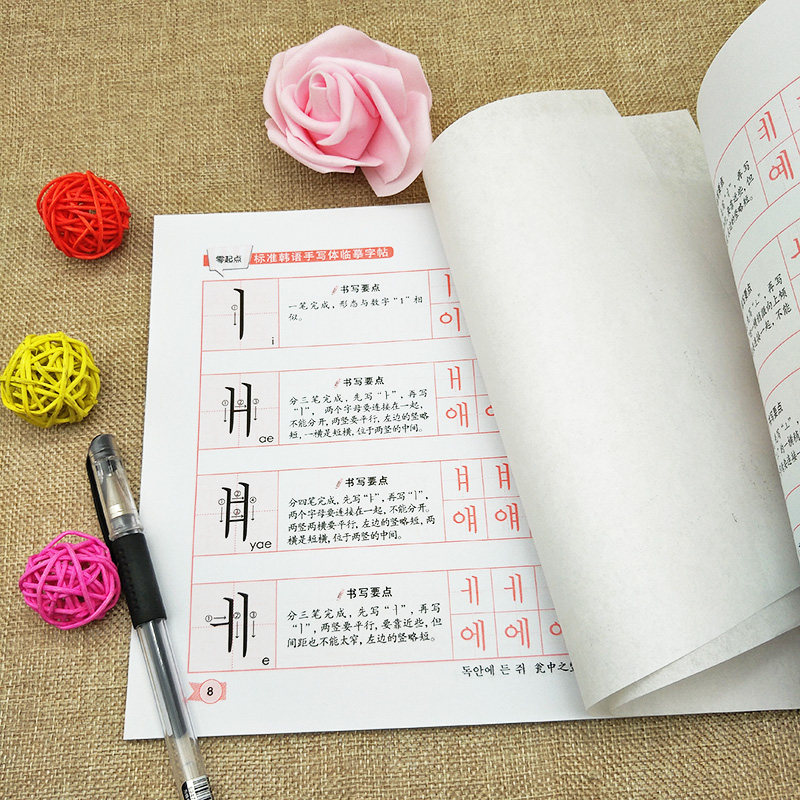 零起点 标准韩语手写体临摹字帖
① i
书写要点
一笔完成，形态与数字“1”相
似。
ㅣ
이
① ② ③ ae
书写要点
分三笔完成，先写“ㅏ”，再写
“ㅣ”，两个字母要连接在一起，
不能分开，两竖要平行，左边的竖略
短，一横是短横，位于两竖的中间。
ㅐ
애
① ② ③ ④ yae
书写要点
分四笔完成，先写“ㅑ”，再写“ㅣ”，
两个字母要连接在一起，不能分开。
两竖两横要平行，左边的竖略短，两
横是短横，位于两竖的中间。
ㅒ ㅒ
얘 얘
① ② ③ e
书写要点
分三笔完成，先写“ㅓ”，再写
“ㅣ”，两竖要平行，要靠近些，但
间距也不能太窄，左边的竖略短。
ㅔ ㅔ
에 에
8
독안에 든 쥐 瓮中之
ㅖ
예
再写